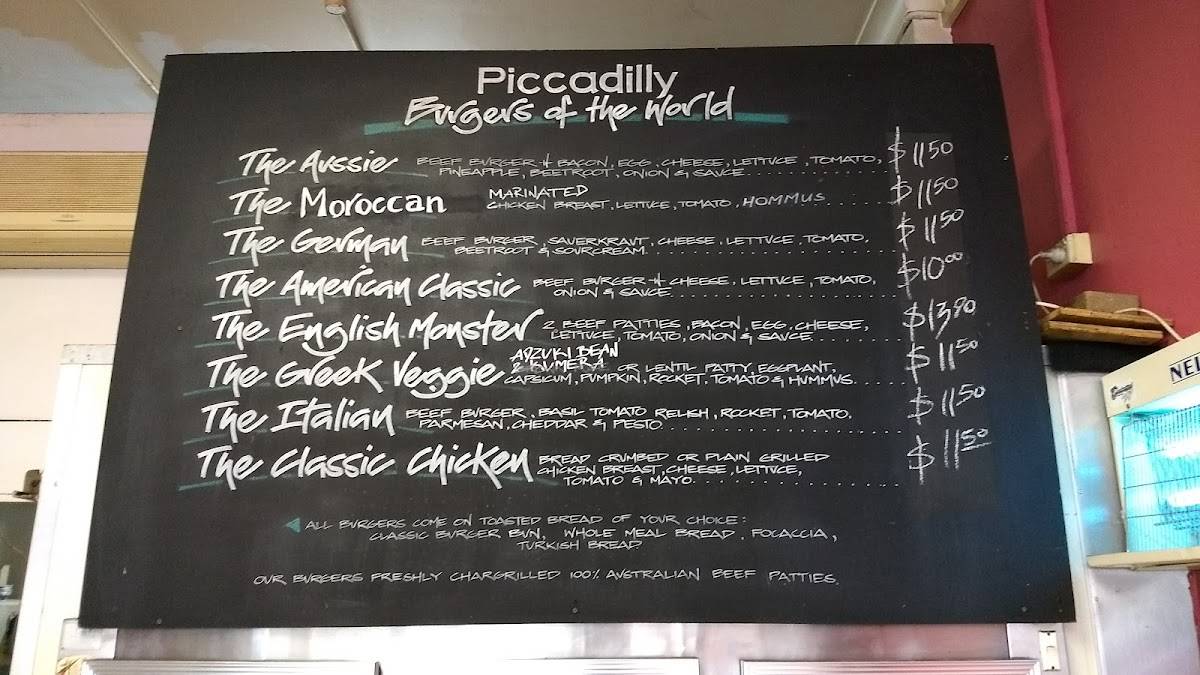 Piccadilly
Burgers of the World
The Aussie BEEF BURGER + BACON, EGG, CHEESE, LETTUCE, TOMATO, $11.50
PINEAPPLE, BEETROOT, ONION & SAUCE
The Moroccan MARINATED $11.50
CHICKEN BREAST, LETTUCE, TOMATO, HOMMUS
The German BEEF BURGER, SAUERKRAUT, CHEESE, LETTUCE, TOMATO, $11.50
BEETROOT & SOURCREAM
The American Classic BEEF BURGER + CHEESE, LETTUCE, TOMATO, $10.00
ONION & SAUCE
The English Monster 2 BEEF PATTIES, BACON, EGG, CHEESE, $13.90
LETTUCE, TOMATO, ONION & SAUCE
ADZUKI BEAN
The Greek Veggie & KUMERA OR LENTIL PATTY, EGGPLANT, $11.50
CAPSICUM, PUMPKIN, ROCKET, TOMATO & HUMMUS
The Italian BEEF BURGER, BASIL TOMATO RELISH, ROCKET, TOMATO, $11.50
PARMESAN, CHEDDAR & PESTO
The Classic Chicken BREAD CRUMBED OR PLAIN GRILLED $11.50
CHICKEN BREAST, CHEESE, LETTUCE,
TOMATO & MAYO
ALL BURGERS COME ON TOASTED BREAD OF YOUR CHOICE:
CLASSIC BURGER BUN, WHOLE MEAL BREAD, FOCACCIA,
TURKISH BREAD
OUR BURGERS FRESHLY CHARGRILLED 100% AUSTRALIAN BEEF PATTIES.